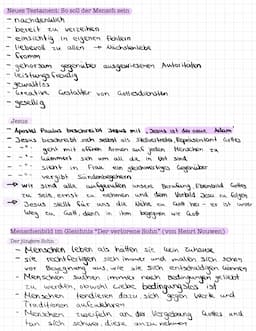 Neues Testament: So soll der Mensch sein
- nachdenklich
- bereit zu verzeihen
- einsichtig in eigenen Fehlern
- liebevoll zu allen → Nächstenliebe
- fromm
- gehorsam gegenüber ausgewiesenen Autoritäten
- leistungsfreudig
- gewaltlos
- kreative Gestalter von Gottesdiensten
- gesellig
Jesus
- Apostel Paulus beschreibt Jesus mit „Jesus ist der neue Adam"
- Jesus beschreibt sich selbst als Stellvertreter, Repräsentant Gottes
- " geht mit offenen Armen auf jeden Menschen zu
- " kümmert sich um all die in Not sind
- " sieht in Frau ein gleichwertiges Gegenüber
- " vergibt Sündenbegehern
→ wir sind alle aufgerufen unsere Berufung, Ebenbild Gottes
zu sein, ernst zu nehmen und dem Vorbild Jesu zu folgen
→ Jesus stellt für uns die Nähe zu Gott her - er ist unser
Weg zu Gott, denn in ihm begegnen wir Gott
Menschenbild im Gleichnis "Der verlorene Sohn" (von Henri Nouwen)
Der jüngere Sohn
- Menschen leben als hätten sie kein Zuhause
- sie rechtfertigen sich immer und malen sich schon
vor Begegnung aus, wie sie sich entschuldigen können
- Menschen suchen immer nach Bedingungen geliebt
zu werden, obwohl Liebe bedingungslos ist
- Menschen tendieren dazu, sich gegen Werte und
Traditionen aufzulehnen
- Menschen zweifeln an der Vergebung Gottes und
tun sich schwer, diese anzunehmen